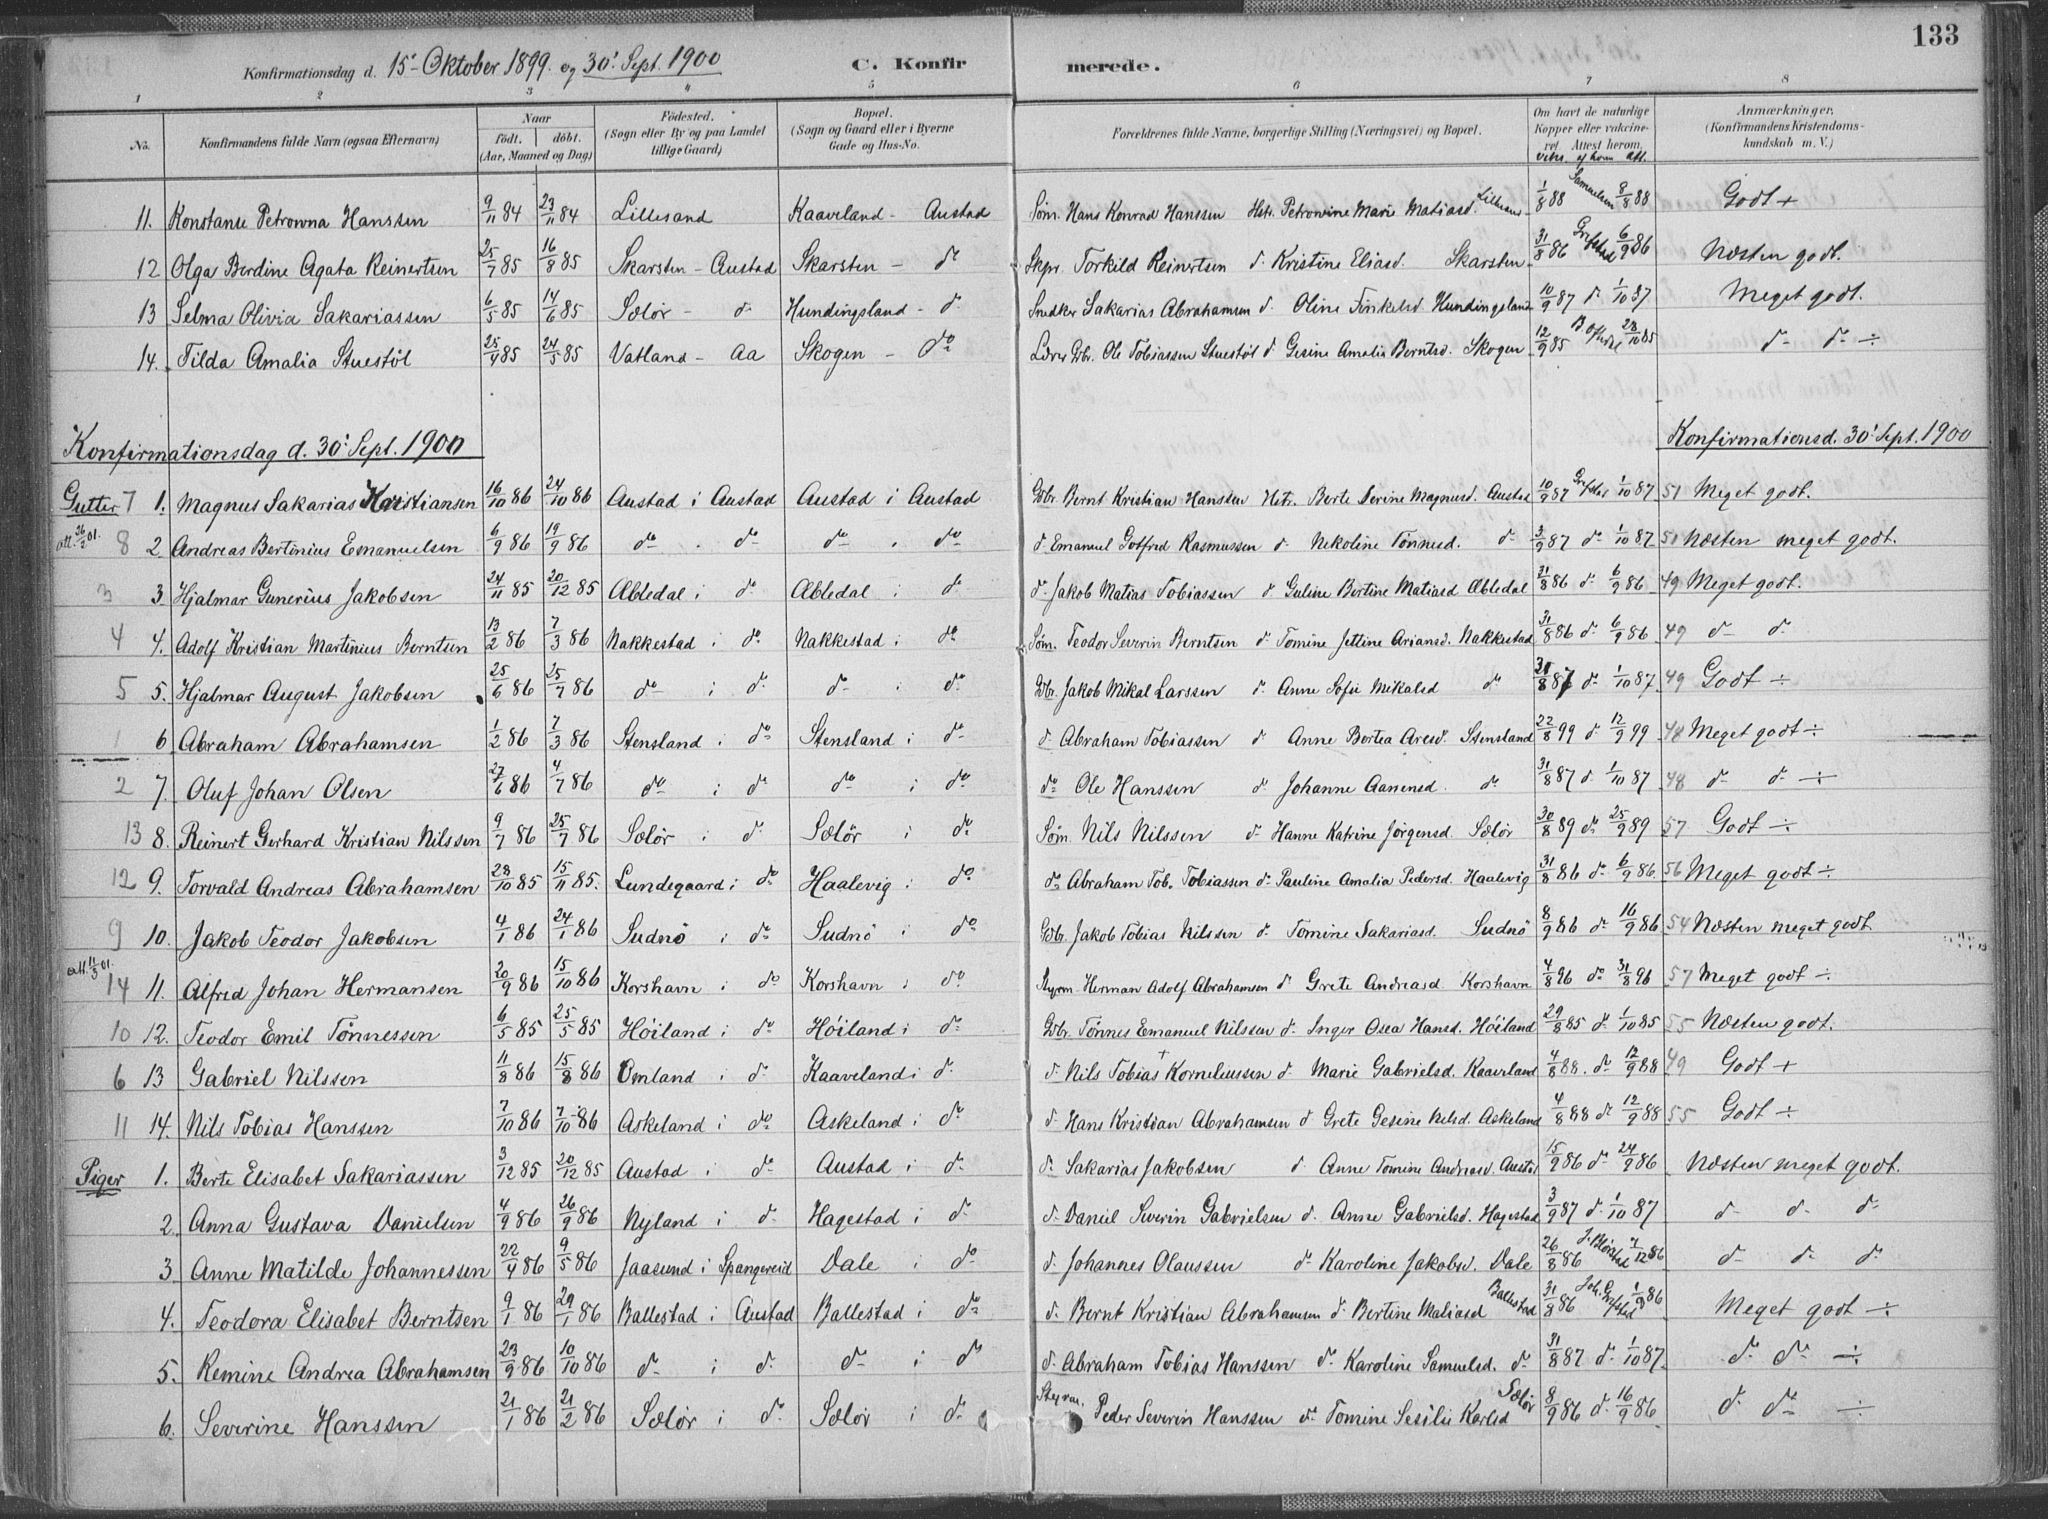 133
Konfirmationsdag d. 15' Oktober 1899 og 30' Sept. 1900 C. Konfirmerede.
1 2 3 4 5 6 7 8
No. Konfirmandens fulde Navn (ogsaa Efternavn) Naar født. døbt. (Aar, Maaned og Dag) Fødested. (Sogn eller By og paa Landet tillige Gaard) Bopæl. (Sogn og Gaard eller i Byerne Gade og Hus-No. Forældrenes fulde Navne, borgerlige Stilling (Næringsvei) og Bopæl. Om havt de naturlige Kopper eller vakcineret. Attest herom. Anmærkninger. (Konfirmandens Kristendomskundskab m. V.)
vaks. af hvem att.
11. Konstanse Petrowna Hanssen 9/11 84 23/11 84 Lillesand Kaaveland - Austad Søm. Hans Konrad Hanssen Hstr. Petrowine Marie Matiasd. Lillesand 1/8 88 Samuelsen 8/8 88 Godt +
12 Olga Berdine Agata Reinertsen 25/7 85 16/8 85 Skarsten - Austad Skarsten - do Skpr. Torkild Reinertsen do Kristine Eliasd. Skarsten 31/8 86 Grefstad 6/9 86 Næsten godt.
13 Selma Olivia Sakariassen 6/5 85 14/6 85 Sælør - do Hundingsland - do Snedker Sakarias Abrahamsen do Oline Tinkelsd Hundingsland 10/9 87 do 1/10 87 Meget godt.
14. Tilda Amalia Stuestøl 25/4 85 24/5 85 Vatland - Aa Skogen - do Lærer Gbr. Ole Tobiassen Stuestøl do Gesine Amalia Berntsd. Skogen 12/9 85 28/10 85 do do ÷
Konfirmationsdag d. 30' Sept. 1900 Konfirmationsd. 30' Sept. 1900
Gutter 7 1. Magnus Sakarias Kristiansen 16/10 86 24/10 86 Austad i Austad Austad i Austad Gbr. Bernt Kristian Hanssen Hstr. Berte Serine Magnusd. Austad 10/9 87 Grefstad 1/10 87 51 Meget godt.
att. 26/2 01. 8 2 Andreas Bertinius Emanuelsen 6/9 86 19/9 86 do do do do do Emanuel Gotfred Rasmussen do Nikoline Tønnesd. do 3/9 87 do 1/10 87 50 Næsten meget godt.
3 3 Hjalmar Gunerius Jakobsen 24/11 85 20/12 85 Æbledal i do Æbledal i do do Jakob Matias Tobiassen do Guline Bertine Matiasd Æbledal 31/8 86 do 6/9 86 49 Meget godt.
4 4. Adolf Kristian Martinius Berntsen 13/2 86 7/3 86 Nakkestad i do Nakkestad i do Søm. Teodor Severin Berntsen do Tomine Jettine Ariansd. Nakkestad 31/8 86 do 6/9 86 49 do do
5 5. Hjalmar August Jakobsen 25/6 86 25/7 86 do i do do i do Gbr. Jakob Mikal Larssen do Anne Sofie Mikalsd do 31/8 87 do 1/10 87 49 Godt ÷
1 6 Abraham Abrahamsen 1/2 86 7/3 86 Stensland i do Stensland i do do Abraham Tobiassen do Anne Bertea Aresd. Stensland 22/8 99 do 12/9 99 48 Meget godt ÷
2 7. Oluf Johan Olsen 27/6 86 4/7 86 do i do do i do do Ole Hanssen do Johanne Aanensd. do 31/8 87 do 1/10 87 48 do do ÷
13 8. Reinert Gerhard Kristian Nilssen 9/7 86 25/7 86 Sælør i do Sælør i do Søm. Nils Nilssen do Hanne Katrine Jørgensd. Sælør 30/8 89 do 25/9 89 57 Godt ÷
12 9. Torvald Andreas Abrahamsen 28/10 85 15/11 85. Lundegaard i do Haalevig i do do Abraham Tob. Tobiassen do Pauline Amalia Pedersd. Haalevig 31/8 86 do 6/9 86. 56 Meget godt ÷
9 10. Jakob Teodor Jakobsen 4/1 86 24/1 86 Sudnø i do Sudnø i do Gbr. Jakob Tobias Nilssen do Tomine Sakariasd. Sudnö 8/9 86 do 16/9 86 54 Næsten meget godt
att. 11/3 01. 14 11. Alfred Johan Hermansen 20/9 86 15/10 86 Korshavn i do Korshavn i do Styrm. Herman Adolf Abrahamsen do Grete Andreasd Korshavn 4/8 96 do 31/8 96 57 Meget godt ÷
10 12. Teodor Emil Tønnessen 6/5 85 25/5 85 Høiland i do Høiland i do Gbr. Tönnes Emanuel Nilssen do Inger Osea Hansd. Höiland 29/8 85 do 1/10 85 55 Næsten godt.
6 13 Gabriel Nilssen 11/8 86 15/8 86 Omland i do Kaaveland i do do Nils Tobias + Korneliussen do Marie Gabrielsd. Kaaveland 4/8 88. do 12/9 88 49 Godt +
11 14. Nils Tobias Hanssen 7/10 86 7/10 86 Askeland i do Askeland i do do Hans Kristian Abrahamsen do Grete Gesine Nelsd. Askeland 4/8 88 do 12/9 88 55 Godt ÷
Piger 1. Berte Elisabet Sakariassen 3/12 85 20/12 85 Austad i do Austad i do do Sakarias Jakobsen do Anne Tomine Andreasd. Austad 15/9 86 do 24/9 86 Næsten meget godt.
2. Anna Gustava Danielsen 4/9 86 26/9 86 Nyland i do Hagestad i do do Daniel Severin Gabrielsen do Anne Gabrielsd. Hagestad 3/9 87 do 1/10 87 do do do
3. Anne Matilde Johannessen 22/4 86 9/5 86 Jaasund i Spangereid Dale i do do Johannes Olaussen do Karoline Jakobsd. Dale 26/8 86 /12 86 do do do
4. Teodora Elisabet Berntsen 9/1 86 29/1 86 Ballestad i Austad Ballestad i do do Bernt Kristian Abrahamsen do Bertine Matiasd Ballestad 31/8 86 Joh. Grefstad 1/9 86 Meget godt ÷
5. Remine Andrea Abrahamsen 23/9 86 10/10 86 do i do do i do do Abraham Tobias Hanssen do Karoline Samuelsd. do 31/8 87 do 1/10 87. do do ÷
6. Severine Hanssen 21/1 86 21/2 86 Sælør i do Sælør i do Styrm. Peder Severin Hanssen do Tomine Sesilie Karlsd Sælør 8/9 86 do 16/9 86 do do ÷